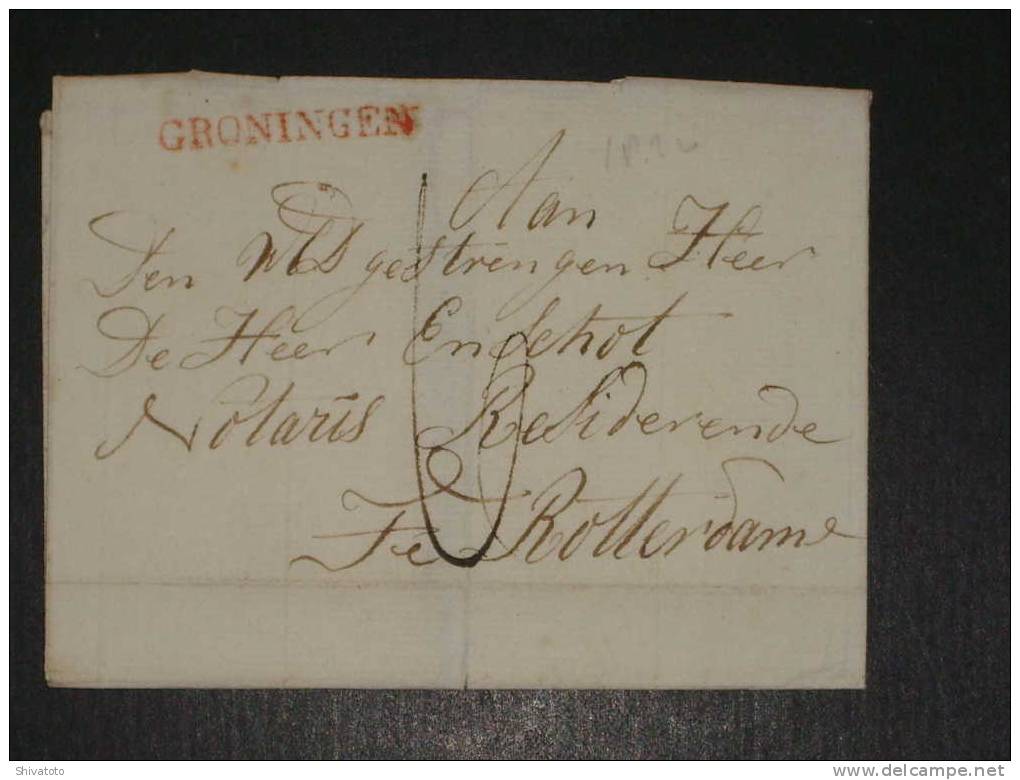 GRONINGEN
Aan
Den WED gestrengen Heer
De Heer Enschot
Notaris Residerende
Te Rotterdam
Shivatoto
delcampe.net